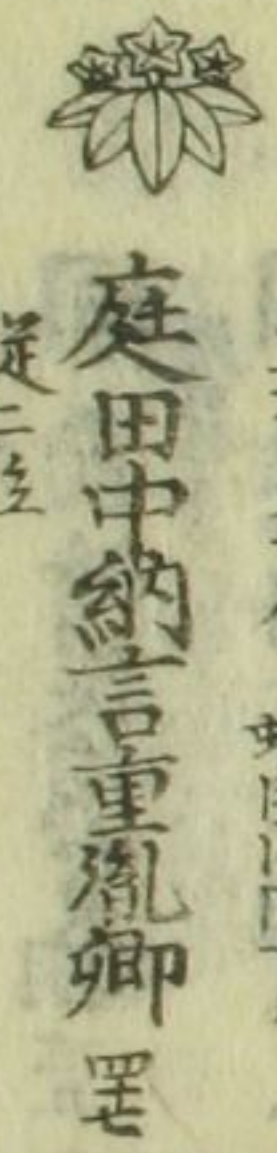 庭田中納言重胤卿 四十七
従二位